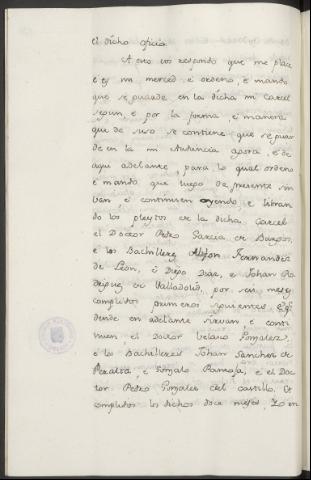 el dicho oficio
A esto vos respondo que me place
e es mi merced e ordeno, e mando
que se guarde en la dicha mi carcel
segun, e por la forma, e manera
que de suso se contiene, que se guar
de en la mi Audiencia agora, e de
aqui adelante, para lo qual ordeno
e mando que luego de presente sir
van, e continuen oyendo, e libran
do los pleytos de la dicha Carcel
el Doctor Pedro Garcia de Burgos,
e los Bachilleres Alfon Fernandez
de Leon, e Diego Diaz, e Johan Ro
driguez de Valladolid, por seis meses
complidos primeros siguientes, e
dende en adelante sirvan, e conti
nuen, el Doctor Velasco Gonzalez,
e los Bachilleres Johan Sanchez de
Peralta, e Gonzalo Pantoja, e el Doc
tor Pedro Gonzales del Castillo. Et
complidos los dichos doce meses, Yo en